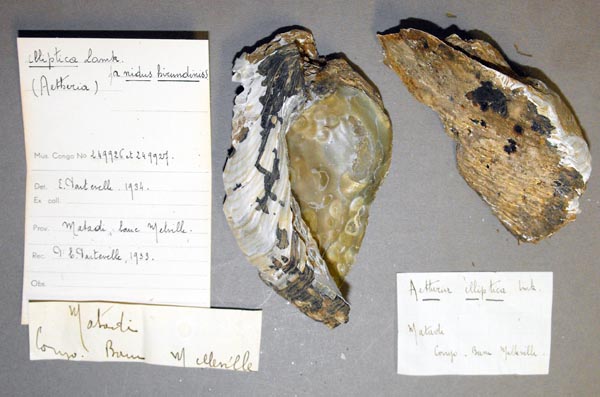 elliptica Lamk.
fa nidus hirundinus)
(Aetheria)
Mus. Congo No 249926 et 249927.
Det. E. Dartevelle, 1934.
Ex coll.
Prov. Matadi, banc Melville.
Rec. E. Dartevelle, 1933.
Obs.
Matadi
Congo. Banc Melleville
Aetheria elliptica Lmk.
Matadi
Congo. Banc Melleville.